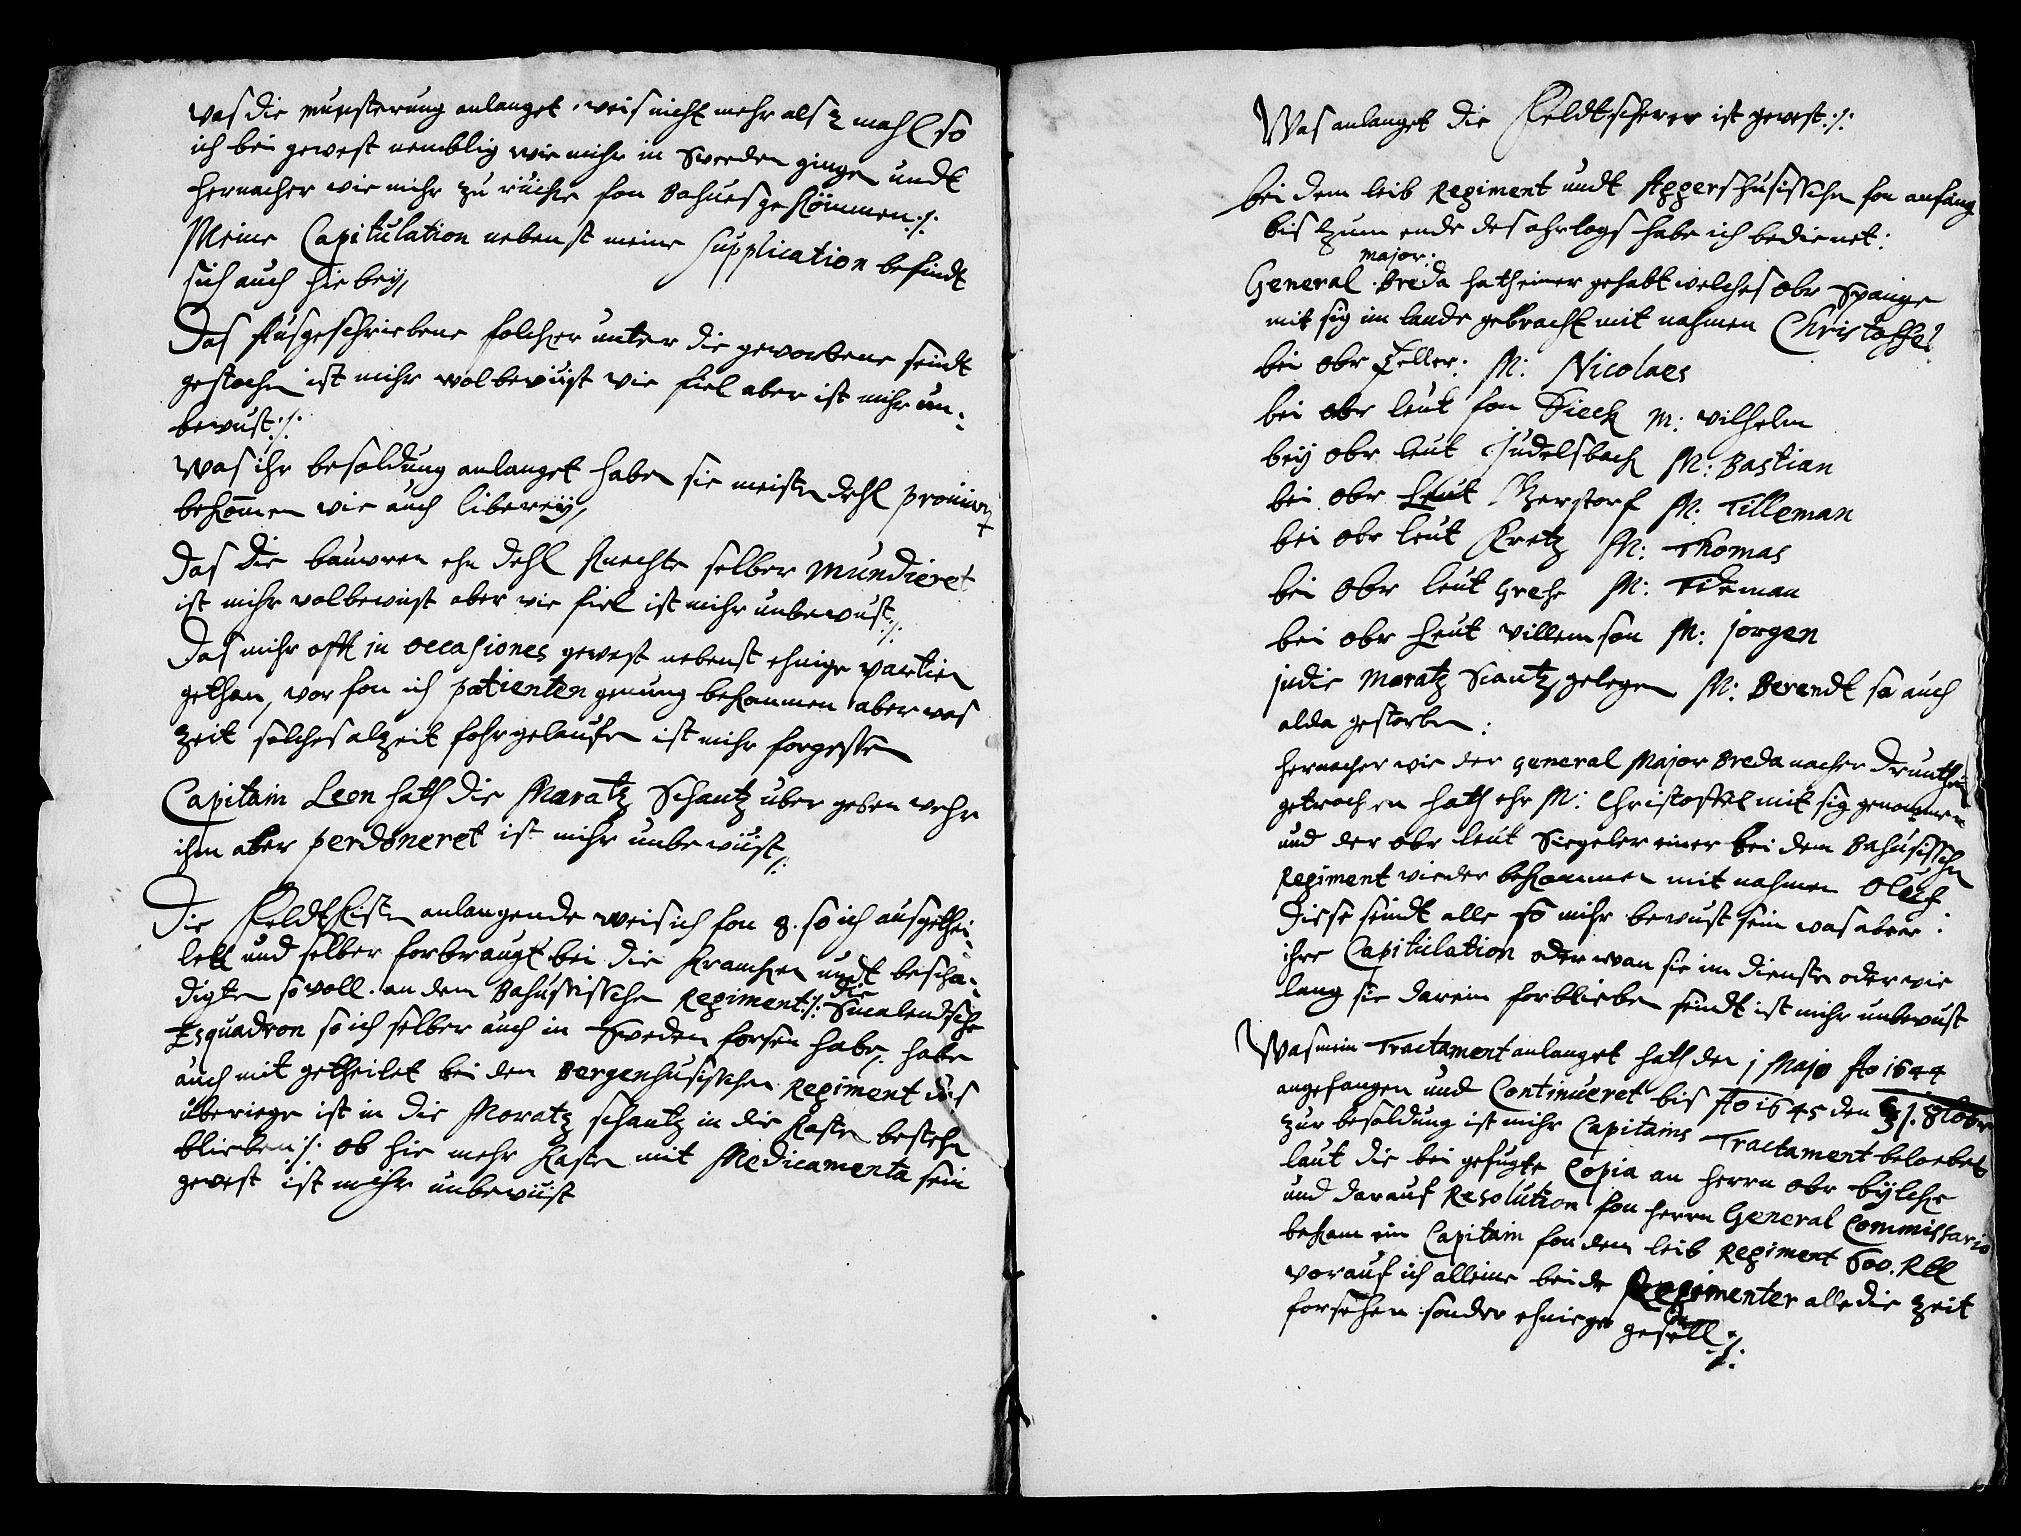 was die munsterung anlanget, weis nicht mehr als 2 mahl so
ich bei gewest nemblig wie mihr in Sweeden gingen undt
hernacher wie mihr zu rücke fon Bahues ge kömmen :/:
Meine Capitulation nebenst meine Supplication befindt
sich auch hie bey,
Das Ausgeschriebene folcher unter die geworbene seindt
gestochen ist mihr wol bewüst wie fiel aber ist mihr un-
bewust :/:
Was ihr besoldung anlanget haben sie meisten dehl proviant
bekommen wie auch liberey,
Das die bauwren ehn dehl Knechte selber mundieret
ist mihr wol bewust aber wie fiel ist mihr unbewust :/:
Das mihr offt in occasiones gewest nebenst ehnige partien
gethan, wor fon ich patienten genung bekommen aber was
zeit solches alzeit fohrgelaufen ist mihr forgessen
Capitain Leon hath die Maratz Schantz uber geben wehr
ihm aber perdoneret ist mihr unbewüst :/:
Die Feldt Kisten anlangende weis ich fon 8. so ich ausgethei-
lett und selber forbraugt bei die Krancken undt beschä-
digten so woll an dem Bahusissche Regiment :/: die Smalendsche
Esquadron so ich selber auch in Sweden forsen habe, habe
auch mit getheilet bei den Bergenhusisschen Regiment das
überiege ist in die Moratz schantz in die Kasten bestehn
blieben :/: ob hie mehr Kasten mit Medicamenta sein
gewest ist mihr unbewüst
Was anlanget die Feldtscherer ist gewest :/:
bei dem leib Regiment undt Aggershusisschen fon anfang
bis zum ende des ohrlogs habe ich bedienet :
major:
General Breda hath einer gehabt welches obr Spange
mit sig im lande gebracht mit nahmen Christoffel
bei obr Zeller : M: Nicolaes
bei obr leut fon Dieck M: wilhelm
bey obr leut Judelsbach M: Bastian
bei obr Leut Merstorf M: Tilleman
bei obr leut Kretz M: Thomas
bei obr leut Grehe M: Tideman
bei obr Leut Willemson M: Jorgen
in die Moratz Scantz gelegen M: Berendt so auch
alda gestorben :
hernacher wie der general Major Breda nacher Drunthem
getrochen hath ehr M: Christoffel mit sig genommen
und der obr leut Siegeler einer bei dem Bahusisschen
Regiment wieder bekommen mit nahmen Oluf
Diese seindt alle so mihr bewust sein was aber
ihre Capitulation oder wan sie im dienste oder wie
lang sie darein forblieben seindt ist mihr unbewust
Was mein Tractament anlanget hath den j Majo Ao 1644
angefangen und Continueret bis Ao 1645 den 31. 8tobr
zur besoldung ist mihr Capitains Tractament belaebet
laut die bei gefugte Copia an herrn obr bylche
und darauf Resolution fon herrn General Commissario
bekom ein Capitain fon dem leib Regiment 600. Rtl
worauf ich alleine beide Regimenter alle die zeit
forsehen sonder ehnige gesell :/: